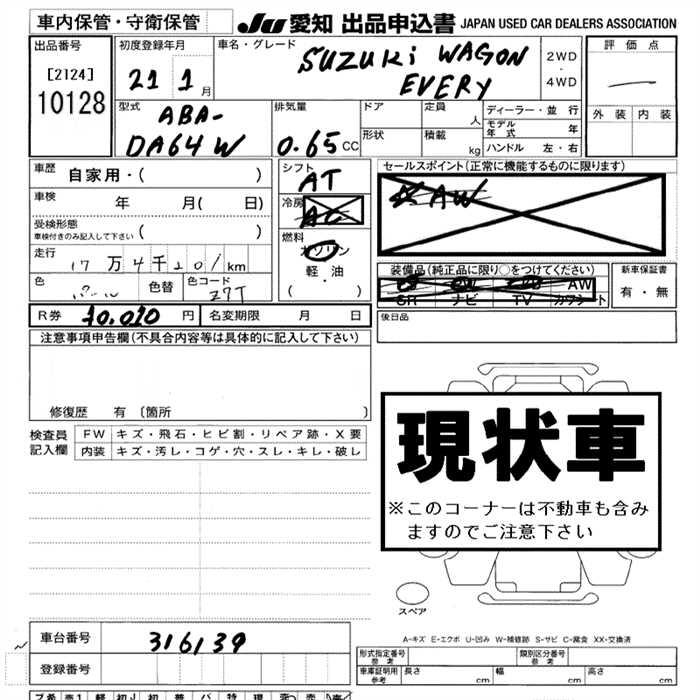 車内保管・守衛保管
JU 愛知 出品申込書 JAPAN USED CAR DEALERS ASSOCIATION
出品番号
[2124]
10128
初度登録年月
21 1月
車名・グレード
SUZUKI WAGON
EVERY
2WD
・
4WD
評価点
外装 内装
型式
ABA-
DA64W
排気量
0.65CC
ドア
形状
定員 人
積載 kg
ディーラー・並行
モデル年式 年
ハンドル 左・右
車歴 自家用・( )
車検 年 月( 日)
受検形態
車検付きのみ記入して下さい ( )
走行
17万4千201km
色
色替
色コード
Z7T
シフト
AT
冷房
AC
燃料
ガソリン
軽・油
( ・ )
セールスポイント(正常に機能するものに限ります)
AW
装備品(純正品に限り○をつけてください)
AW
SR ナビ TV カワシート
新車保証書
有・無
後日品
R券 10.010 円
名変期限 月 日
注意事項申告欄(不具合内容等は具体的に記入して下さい)
修復歴 有 〔箇所 〕
検査員
記入欄
FW キズ・飛石・ヒビ割・リペア跡・X要
内装 キズ・汚レ・コゲ・穴・スレ・キレ・破レ
現状車
※このコーナーは不動車も含み
ますのでご注意下さい
スペア
A-キズ E-エクボ U-凹み W-補修跡 S-サビ C-腐食 XX-交換済
車台番号 316139
登録番号
形式指定番号
参考
類別区分番号
参考
車庫証明用
参考
長さ cm
幅 cm
高さ cm